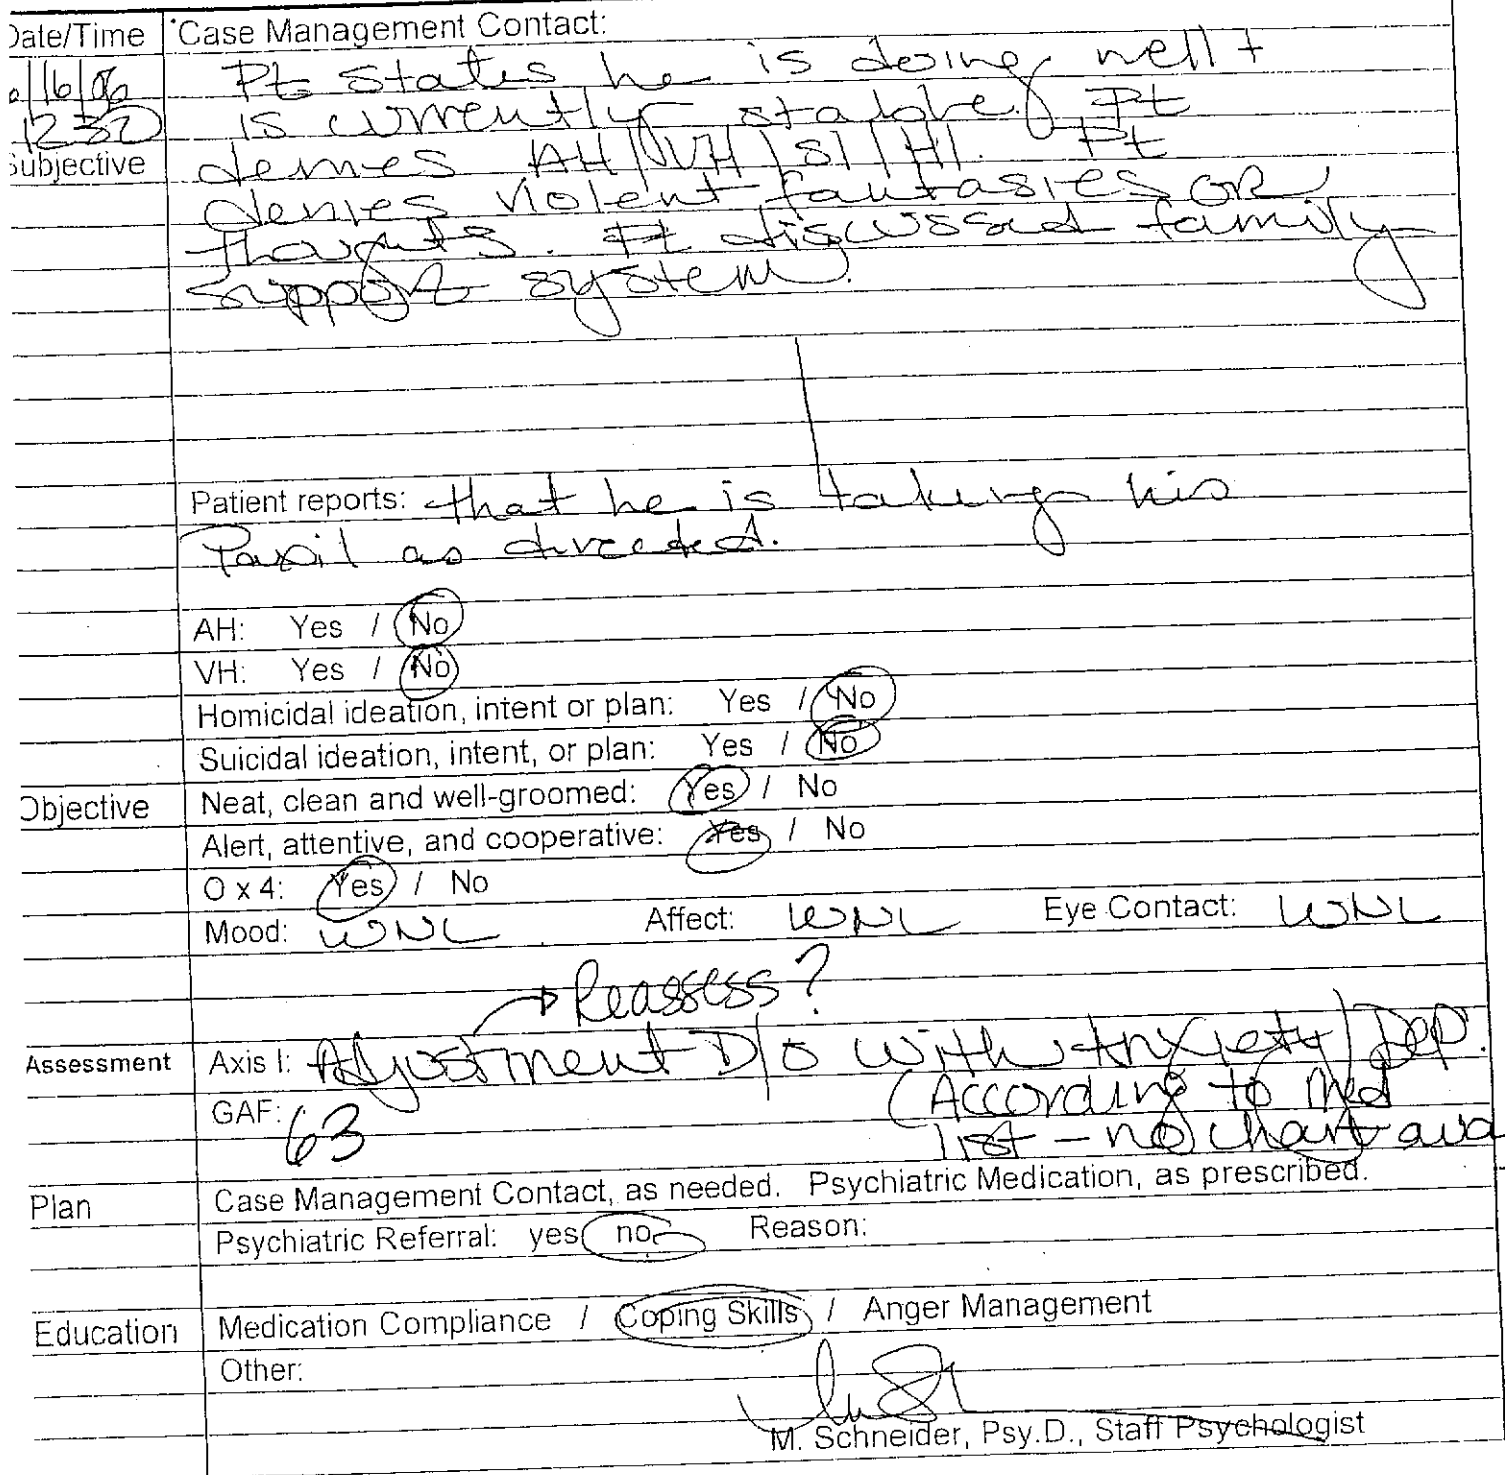 Date/Time Case Management Contact:
/16/06 Pt states he is doing well +
1230 is currently stable. Pt
Subjective denies AH/VH/SI/HI. Pt
denies violent fantasies or
thoughts. Pt discussed family
support system.
Patient reports: that he is taking his
Paxil as directed.
AH: Yes / No
VH: Yes / No
Homicidal ideation, intent or plan: Yes / No
Suicidal ideation, intent, or plan: Yes / No
Objective Neat, clean and well-groomed: Yes / No
Alert, attentive, and cooperative: Yes / No
O x 4: Yes / No
Mood: WNL Affect: WNL Eye Contact: WNL
Reassess?
Assessment Axis I: Adjustment D/o with Anxiety/Dep.
(According to Med
GAF: 63 list - no chart ava
Plan Case Management Contact, as needed. Psychiatric Medication, as prescribed.
Psychiatric Referral: yes no Reason:
Education Medication Compliance / Coping Skills / Anger Management
Other:
M. Schneider, Psy.D., Staff Psychologist